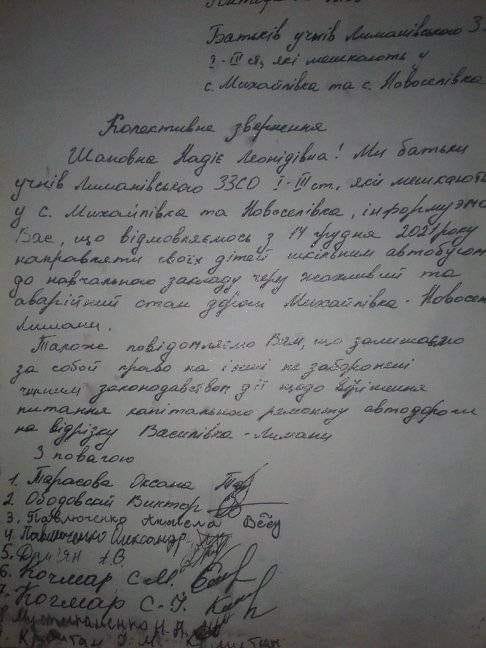 Батьків учнів Лиманівського З
I-III ст, які мешкають у
с. Михайлівка та с. Новоселівка
Колективне звернення
Шановна Надіє Леонідівна! Ми батьки
учнів Лиманівського ЗЗСО I-III ст, які мешкають
у с. Михайлівка та Новоселівка, інформуэмо
Вас, що відмовляємось з 14 грудня 2021 року
направляти своїх дітей шкільним автобусом
до навчального закладу через жахливий та
аварійний стан дороги Михайлівка - Новосел
Лимани.
Також повідомляємо Вам, що залишаємо
за собой право на інші не заборонені
чинним законодавством дії щодо вирішення
питання капітального ремонту автодороги
на відрізку Василівка - Лимани
З повагою
1. Тарасова Оксана
2. Ободовский Виктор
3. Павлюченко
4. Павлюченко Олександр
5.
6. Кочмар С.М.
7. Кочмар С.